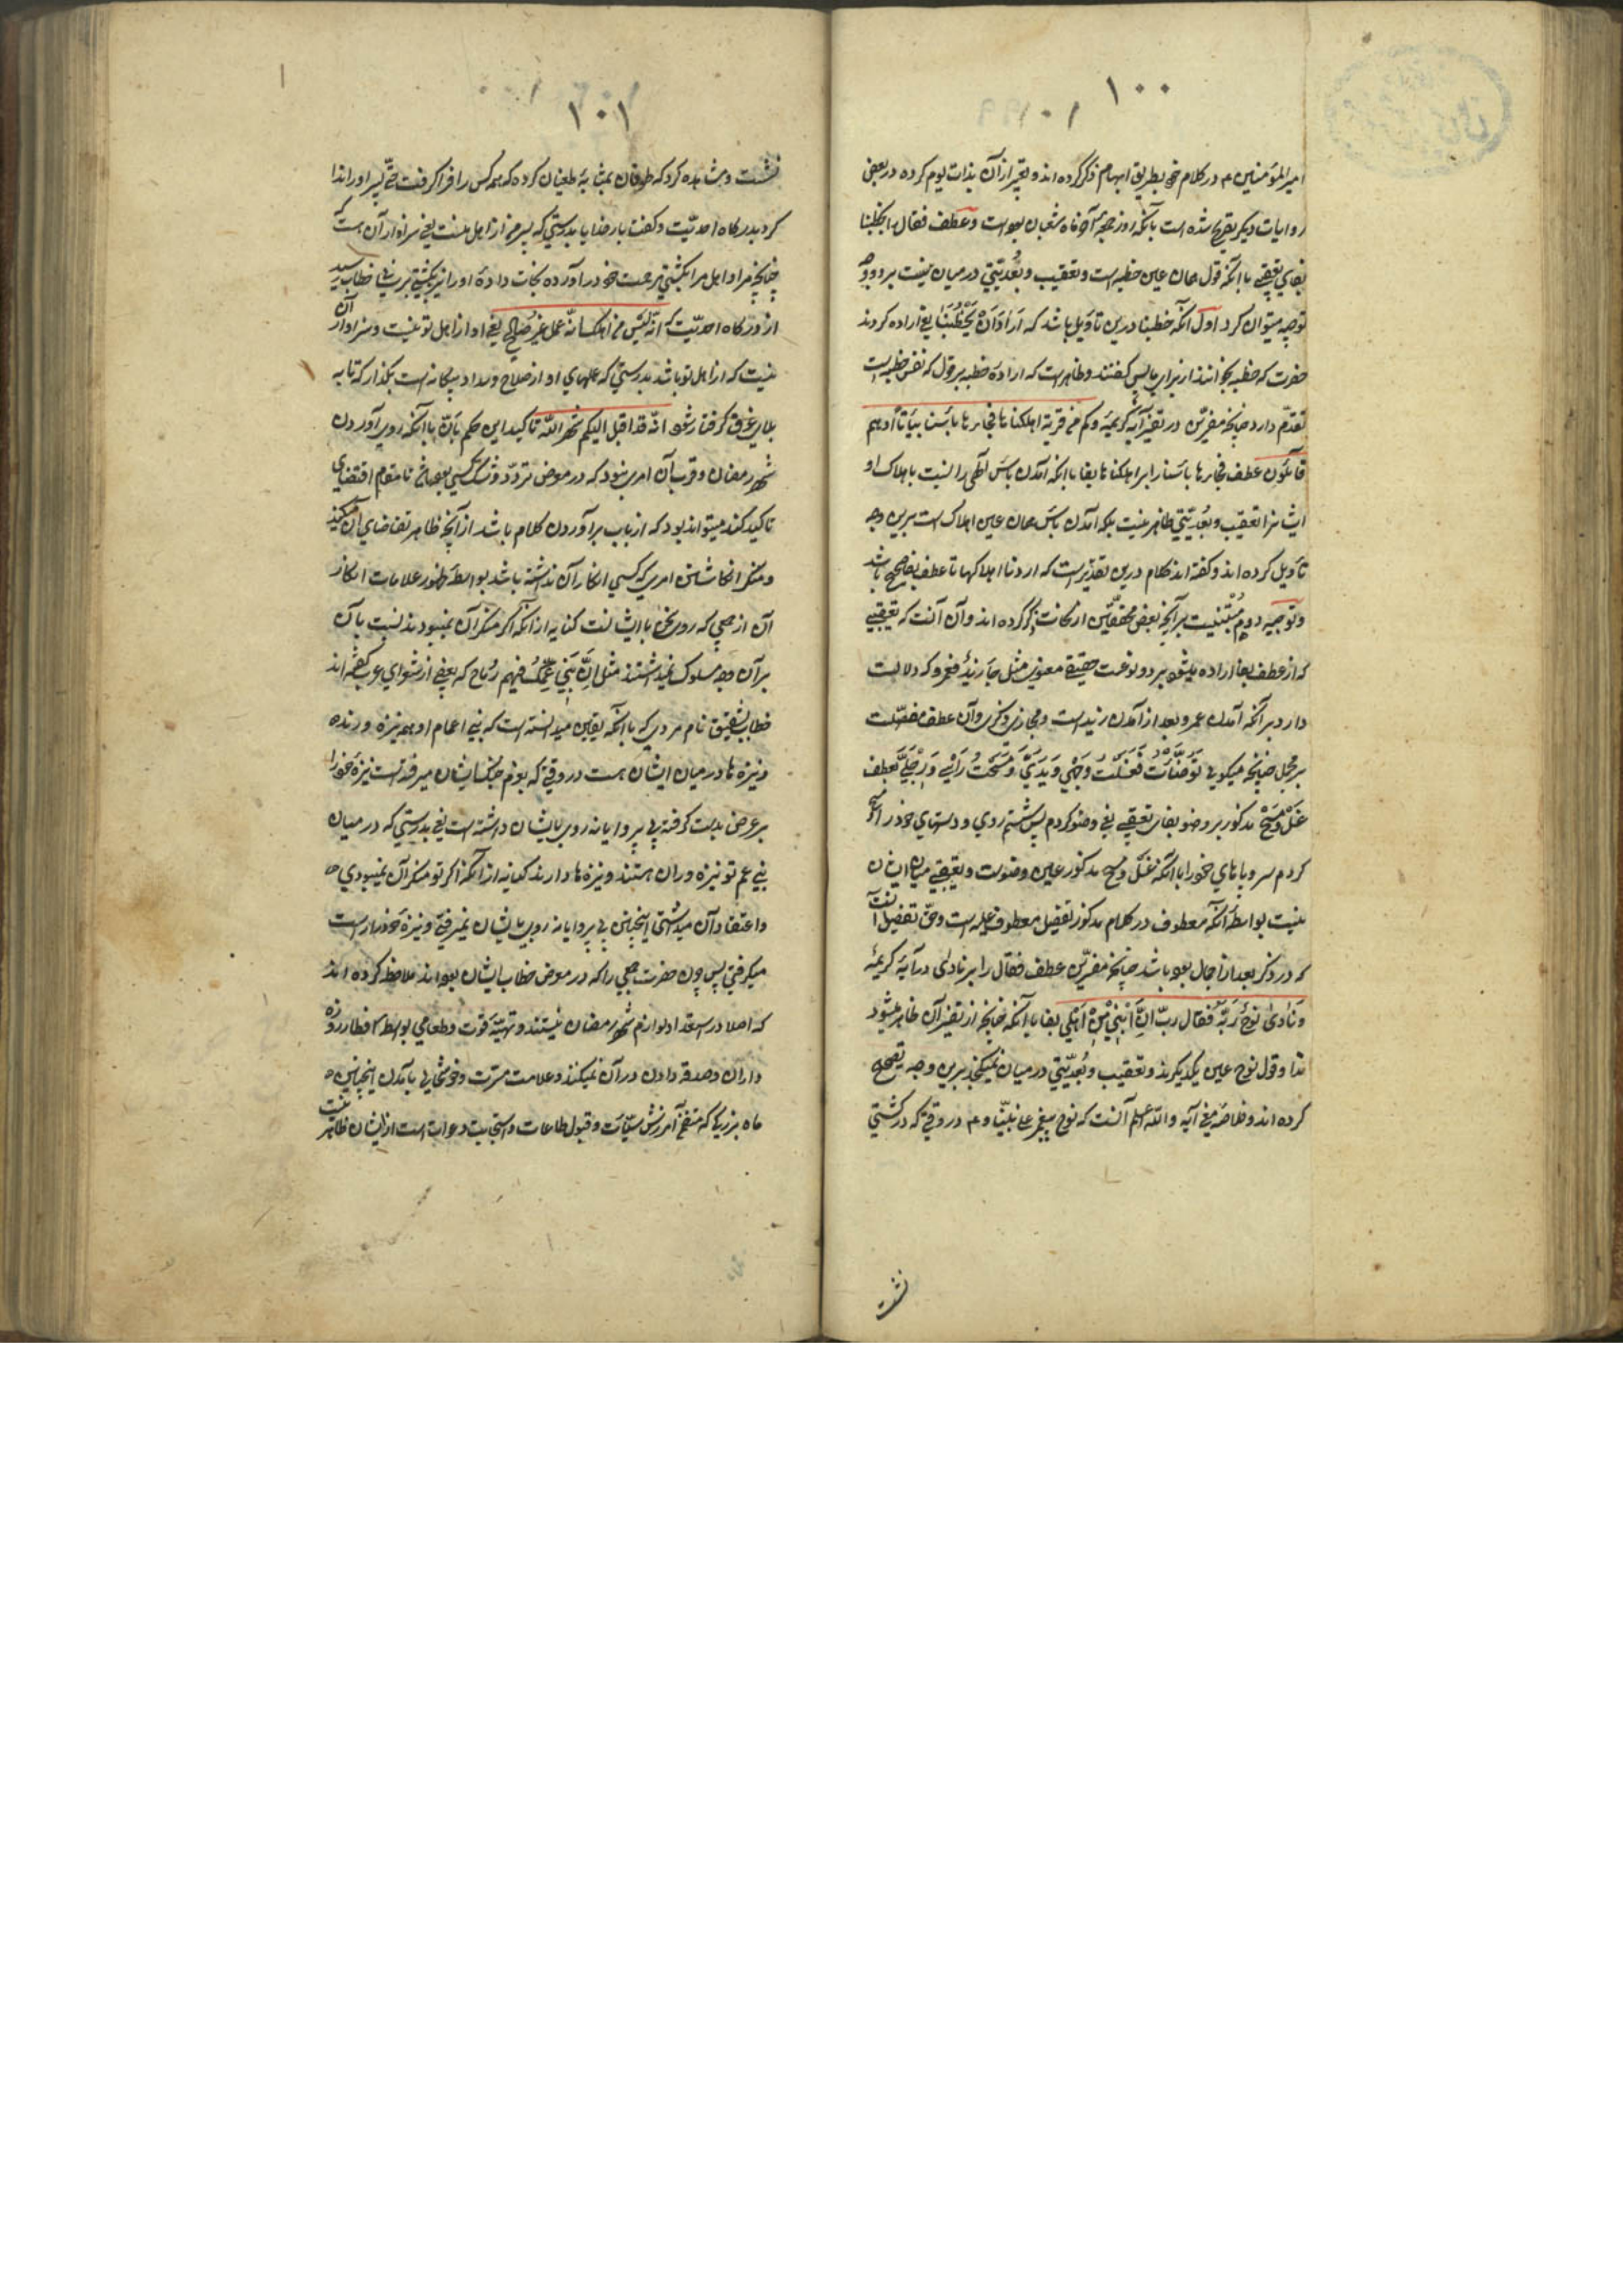 ۱۰۰
امیر المؤمنین ع در کلام خود بطریق ابهام ذکر کرده اند و تعبیر از آن بذات یوم کرده در بعضی
روایات دیکر تصریح شده است بآنکه روز جمعهٔ آخر ماه شعبان بوده است و عطف فقال را بر خطبنا
بفای تعقیبی با آنکه قول همان عین خطبه است و تعقیب و بعدیتی در میان نیست بر دو وجه
توجیه میتوان کرد اول آنکه خطبنا درین تاویل باشد که اراد ان یخطبنا یعنی اراده کردند
حضرت که خطبه بخوانند از برای ما پس کفتند و ظاهر است که اراده خطبه بر قول که نفس خطبه است
تقدم دارد چنانچه مفسرین در تفسیر آیهٔ کریمهٔ وکم من قریة اهلکناها فجاءها باسنا بیاتا او هم
قائلون عطف فجاءها باسنا را بر اهلکناها بفا با آنکه آمدن باس الهی را نسبت باهلاک او
ایشانرا تعقیب و بعدیتی ظاهر نیست بلکه آمدن باس همان عین اهلاک است برین وجه
تأویل کرده اند و کفته اند کلام درین تقدیر است که اردنا اهلاکها تا عطف بفا صحیح باشد
و توجیه دوم مبتنیست بر آنچه بعضی محققین از نحات ذکر کرده اند و آن آنست که تعقیبی
که از عطف بفا اراده میشود بر دو نوعست حقیقی معنوی مثل جاء زید فعمرو که دلالت
دارد بر آنکه آمدن عمرو بعد از آمدن زید است و مجازی ذکری و آن عطف مفصلست
بر مجمل چنانچه میکویی توضأت فغسلت وجهی و یدی و مسحت رأسی و رجلی که عطف
غسل و مسح مذکور بر وضو بفای تعقیبی یعنی وضو کردم پس شستم روی و دستهای خود را و مسح
کردم سر و پاهای خود را با آنکه غسل و مسح مذکور عین وضوست و تعقیبی میان ایشان
نیست بواسطهٔ آنکه معطوف در کلام مذکور تفصیل معطوف علیه است و حق تفصیل آنست
که در ذکر بعد از اجمال بوده باشد چنانچه مفسرین عطف فقال را بر نادی در آیهٔ کریمهٔ
و نادی نوح ربه فقال رب ان ابنی من اهلی بفا با آنکه چنانچه از تفسیر آن ظاهر میشود
ندا و قول نوح عین یکدیکرند و تعقیب و بعدیتی در میان نمیکنجد برین وجه تصحیح
کرده اند و خلاصهٔ معنی آیه والله اعلم آنست که نوح پیغمبر علی نبینا و ع در وقتی که در کشتی
نشست
۱۰۱
نشست و مشاهده کرد که طوفان بمثابهٔ طغیان کرده که همه کس را فرا کرفت حتی پسر او را ندا
کرد بدرکاه احدیت و کفت بار خدایا بدرستی که پسر من از اهل منست یعنی سزاوار آن هست که
چنانچه مرا و اهل مرا بکشتی مرحمت خود در آورده نجات داده او را نیز بکشتی در آوری خطاب رسید
از درکاه احدیت که انه لیس من اهلک انه عمل غیر صالح یعنی او از اهل تو نیست و سزاوار آن
نیست که از اهل تو باشد بدرستی که عملهای او از صلاح و سداد بیکانه است بکذار که تا به
بلای غرق کرفتار شود انه قد اقبل الیکم شهر الله تاکید این حکم بان با آنکه روی آوردن
شهر رمضان و قرب آن امری نبود که در معرض تردد و شک کسی بوده باشد تا مقام اقتضای
تاکید کند میتواند بود که از باب بر آوردن کلام باشد از آنچه ظاهر تقاضای آن میکند
و منکر انکاشتن امری که کسی انکار آن نداشته باشد بواسطهٔ ظهور علامات انکار
آن از جمعی که روی سخن با ایشانست کنایه از آنکه اکر منکر آن نمیبودند نسبت بآن
بر آن وجه سلوک نمیداشتند مثل ان بنی عمک فیهم رماح که بعضی از شعرای عرب کفته اند
خطاب بشقیق نام مردی که با آنکه یقین میدانسته است که بنی اعمام او همه نیزه ورنده
و نیزه ها در میان ایشان هست در وقتی که بعزم جنک ایشان میرفته است نیزهٔ خود را
بر عرض بدست کرفته بی پروایانه روی بایشان داشته است یعنی بدرستی که در میان
بنی عم تو نیزه وران هستند و نیزه ها دارند کنایه از آنکه اکر تو منکر آن نمیبودی
و اعتقاد آن میداشتی اینچنین بی پروایانه روی بایشان نمیرفتی و نیزهٔ خود را راست
میکرفتی پس چون حضرت جمعی را که در معرض خطاب ایشان بوده اند ملاحظه کرده اند
که اصلا در استعداد لوازم شهر رمضان نیستند و تهیهٔ قوت و طعامی بواسطهٔ افطار روزه
داران و صدقه دادن در آن نمیکنند و علامت مسرت و خوشحالی بآمدن اینچنین
ماه بزرکی که متضمن آمرزش سیئات و قبول طاعات و استجابت دعوات است از ایشان ظاهر نیست